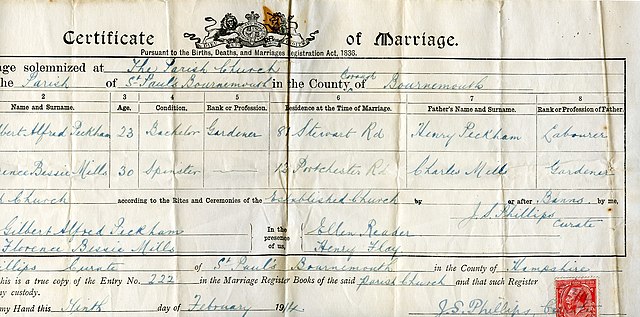 Certificate of Marriage.
Pursuant to the Births, Deaths, and Marriages Registration Act, 1836.
age solemnized at The Parish Church
the Parish of St Paul's Bournemouth in the County of Borough Bournemouth
2 3 4 5 6 7 8
Name and Surname. Age. Condition. Rank or Profession. Residence at the Time of Marriage. Father's Name and Surname. Rank or Profession of Father.
lbert Alfred Peckham 23 Bachelor Gardener 81 Stewart Rd Henry Peckham Labourer
rence Bessie Mills 30 Spinster 12 Portchester Rd Charles Mills Gardener
h Church according to the Rites and Ceremonies of the Established Church by or after Banns by me,
J.S. Phillips
Curate
Gilbert Alfred Peckham In the presence of us, Ellen Reader
Florence Bessie Mills Henry
illips Curate of St Paul's Bournemouth in the County of Hampshire
his is a true copy of the Entry No. 222 in the Marriage Register Books of the said Parish Church and that such Register
y custody.
my Hand this Ninth day of February 1914 J.S. Phillips